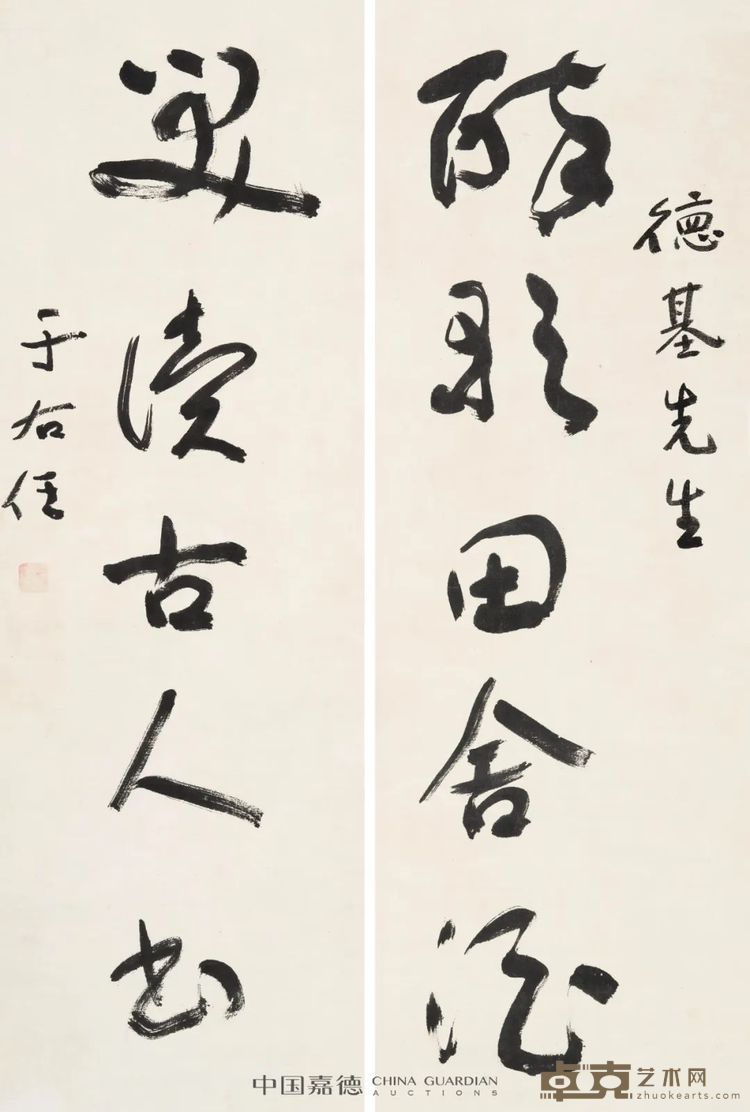 德基先生
醉歌田舍酒
笑讀古人書
于右任
中国嘉德 CHINA GUARDIAN
AUCTIONS
卓克艺术网
zhuokearts.com